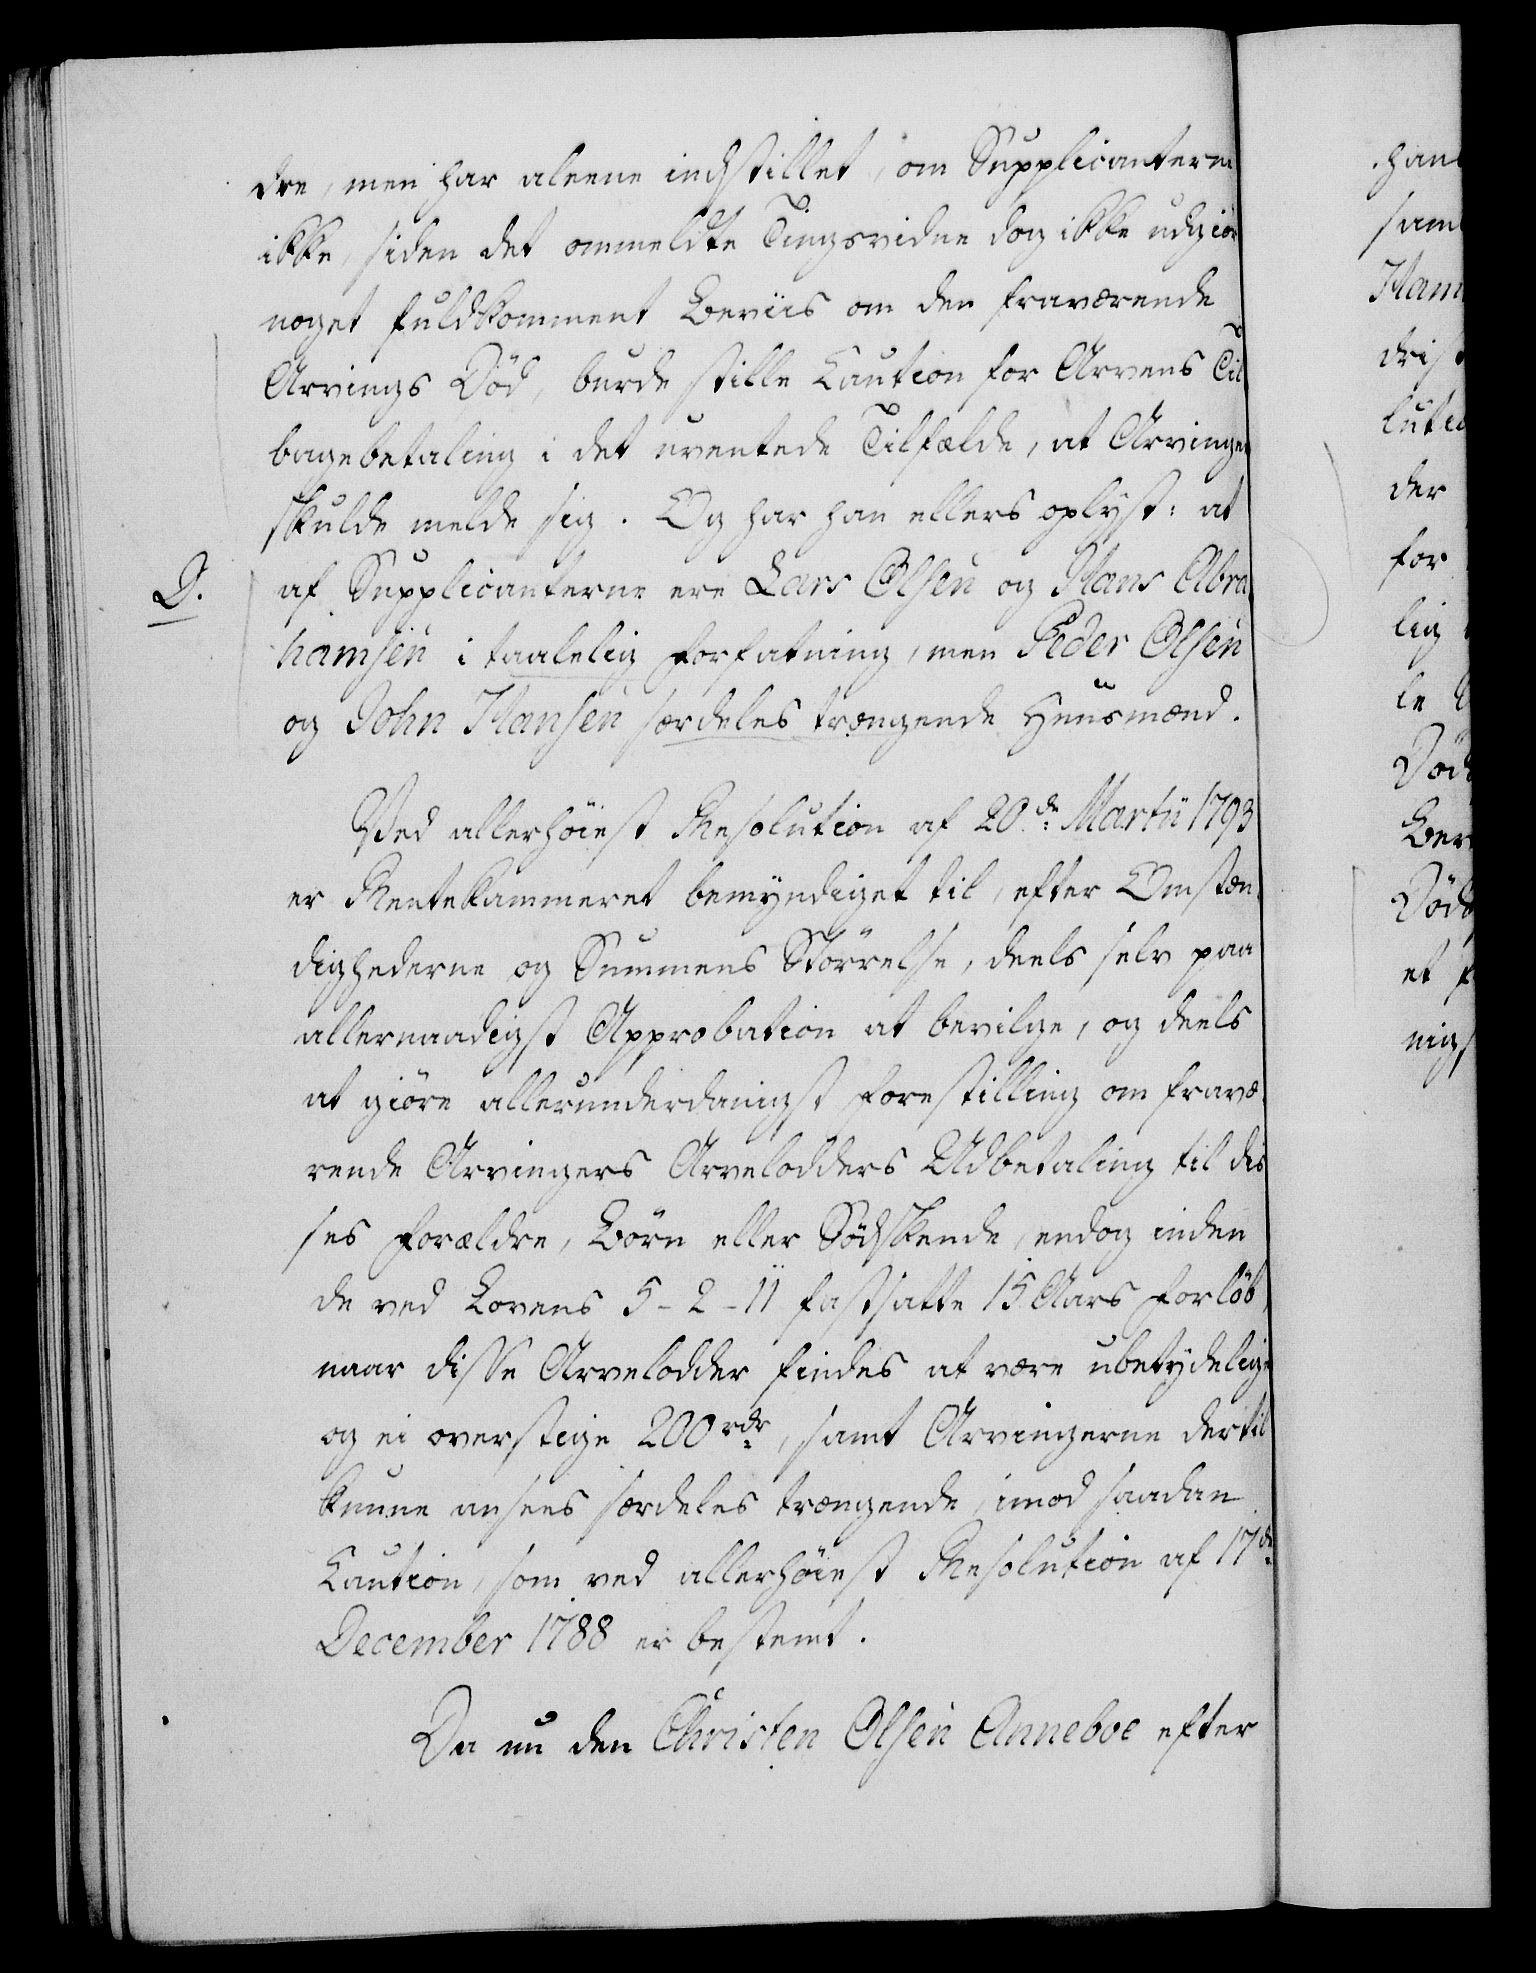 dre, men har aleene indstillet, om Supplicanterne
ikke, siden det ommeldte Tingsvidne dog ikke udgiør
noget fuldkomment Beviis om den fraværende
Arvings Død, burde stille Caution for Arvens Til
bagebetaling i det uventede Tilfælde, at Arvingen
skulde melde sig. Og har han ellers oplyst: at
D.
af Supplicanterne ere Lars Olsen og Hans Abra
hamsen i taalelig Forfatning, men Peder Olsen
og John Hansen særdeles trængende Huusmænd.
Ved allerhöiest Resolution af 20.de Martii 1793
er Rentekammeret bemyndiget til, efter Omstæn
dighederne og Summens Störrelse, deels selv paa
allernaadigst Approbation at bevilge, og deels
at giöre allerunderdanigst Forestilling om fravæ
rende Arvingers Arvelodders Udbetaling til dis
ses Forældre, Börn eller Södskende, endog inden
de ved Lovens 5-2-11 fastsatte 15 Aars Forløb,
naar disse Arvelodder findes at være ubetydelige
og ei overstige 200 rdr, samt Arvingerne dertil
kunne ansees særdeles trængende, imod saadan
Caution, som ved allerhöiest Resolution af 17de
December 1788 er bestemt.
Da nu den Christen Olsen Anneboe efter
han
sam
Ham
drist
lutio
der
for
lig
le
Död
Ber
Död
et f
nigs